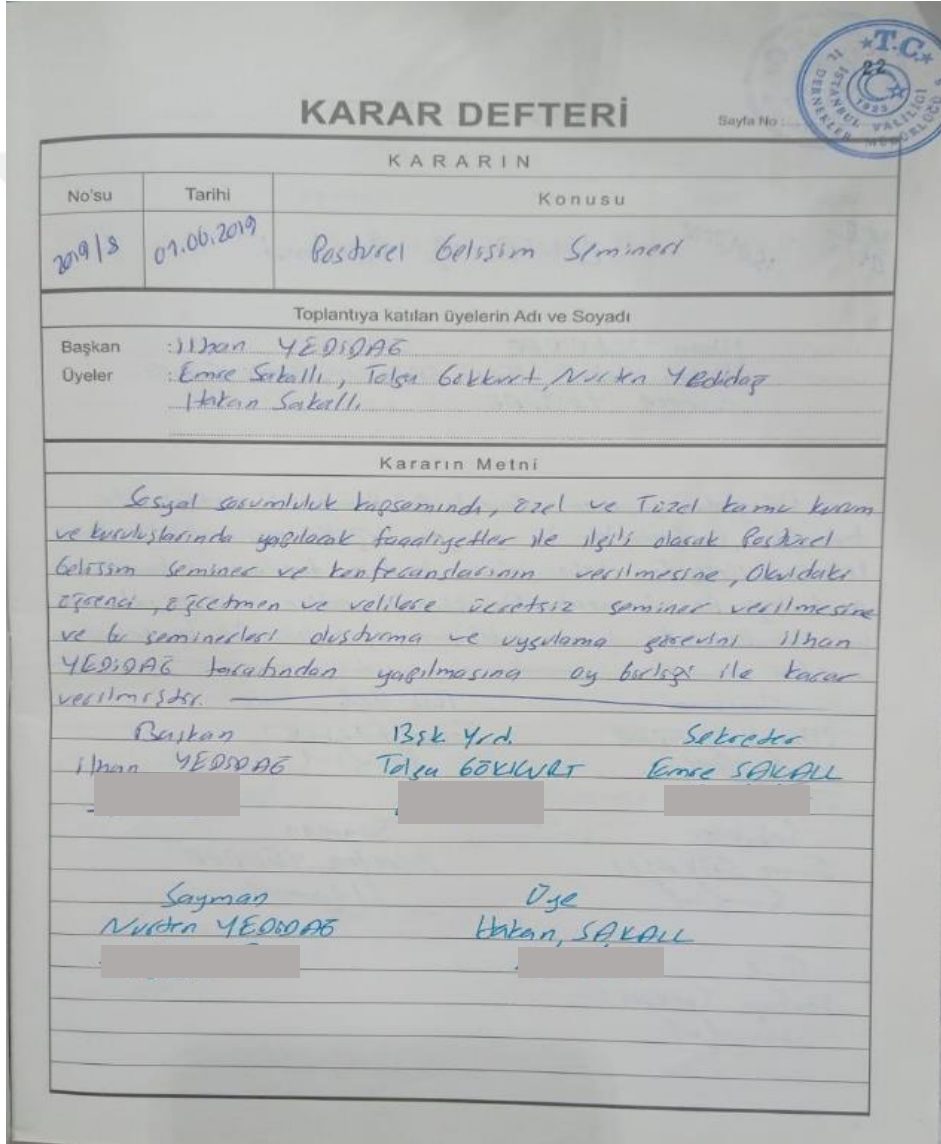 T.C.
22
İSTANBUL VALİLİĞİ
İL DERNEKLER MÜDÜRLÜĞÜ
1923
KARAR DEFTERİ
Sayfa No :
KARARIN
No'su Tarihi Konusu
2019/8 01.06.2019 Postürel Gelişim Semineri
Toplantıya katılan üyelerin Adı ve Soyadı
Başkan : İlhan YEDİDAĞ
Üyeler : Emre Sakallı, Tolga Gökkurt, Nurten Yedidağ
Hakan Sakallı
Kararın Metni
Sosyal sorumluluk kapsamında, özel ve Tüzel kamu kurum
ve kuruluşlarında yapılacak faaliyetler ile ilgili olarak Postürel
Gelişim seminer ve konferanslarının verilmesine, Okuldaki
öğrenci, öğretmen ve velilere ücretsiz seminer verilmesine
ve bu seminerleri oluşturma ve uygulama görevini ilhan
YEDİDAĞ tarafından yapılmasına oy birliği ile karar
verilmiştir.
Başkan Bşk. Yrd. Sekreter
ilhan YEDİDAĞ Tolga GÖKKURT Emre SAKALLI
Sayman Üye
Nurten YEDİDAĞ Hakan, SAKALLI